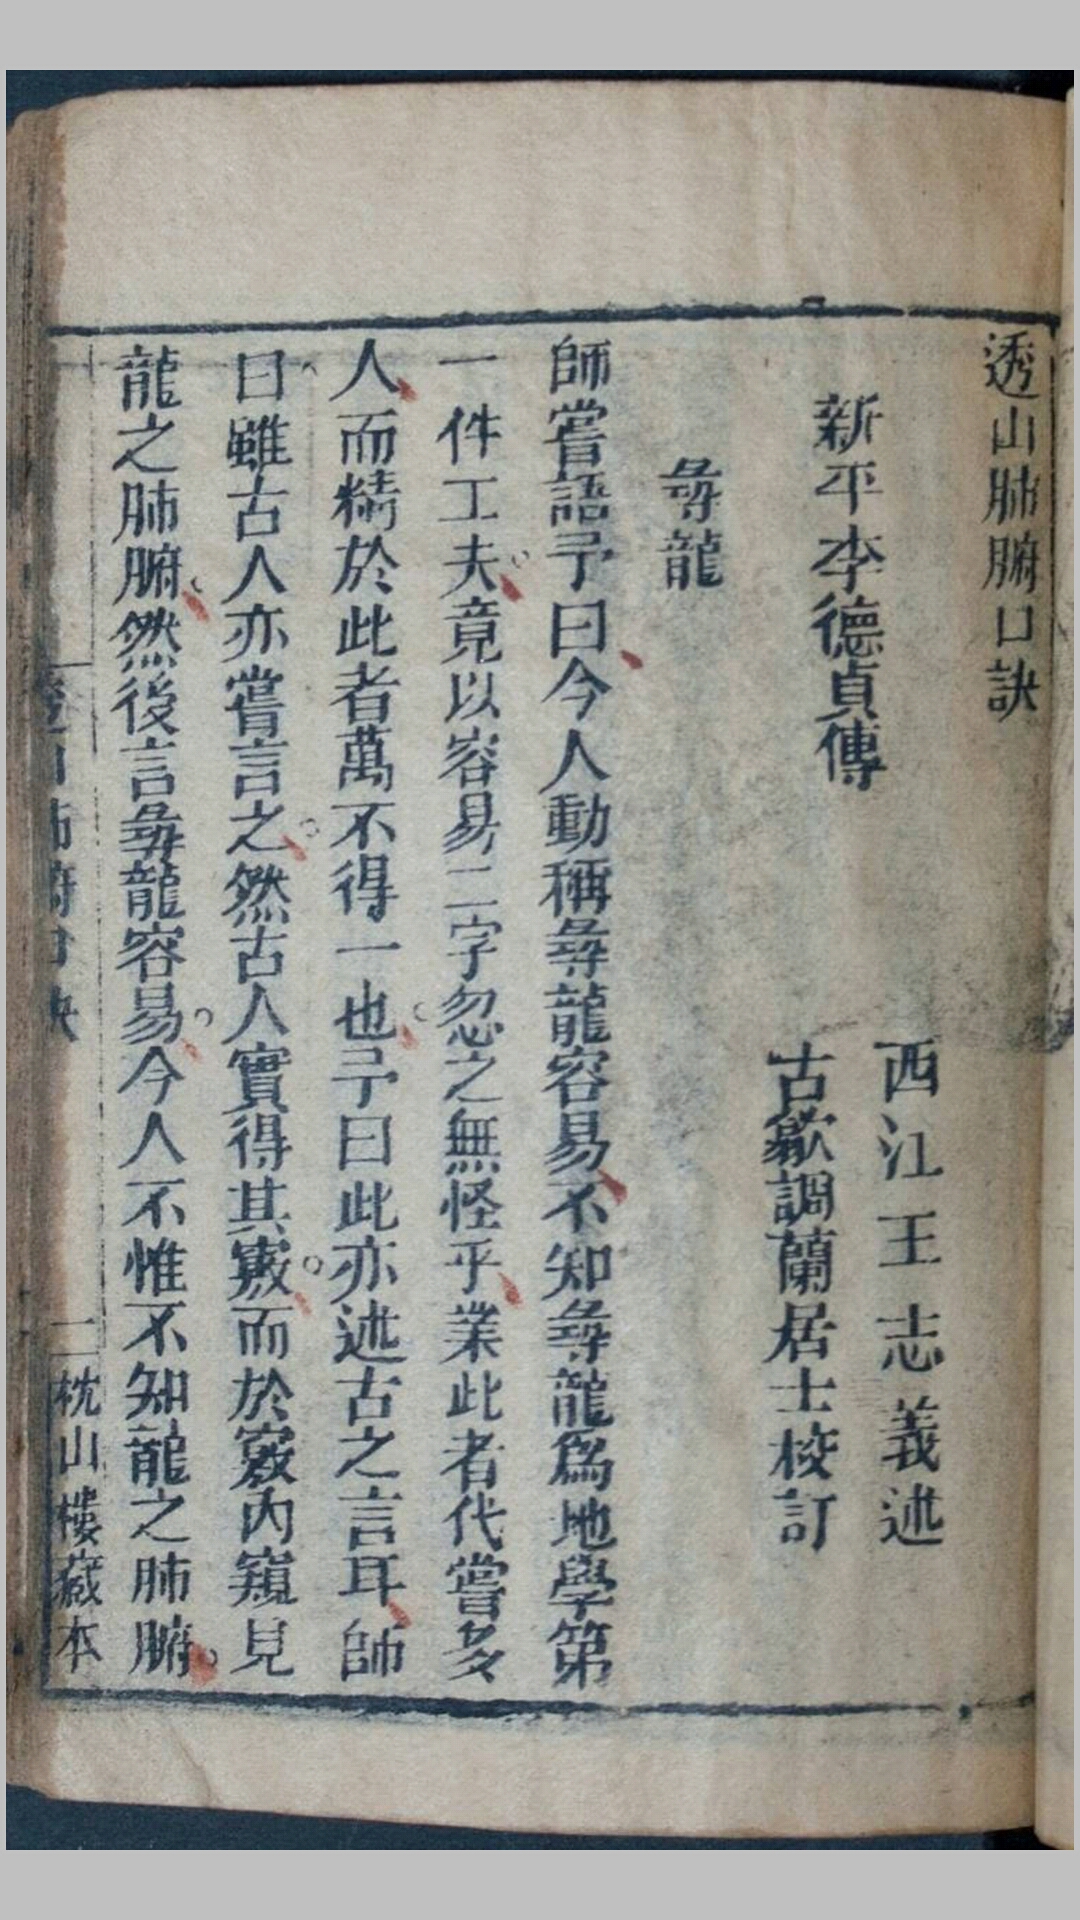 透山肺腑口訣
西江王志義述
新平李德貞傳
古歙調蘭居士校訂
尋龍
師嘗語予曰今人動稱尋龍容易不知尋龍爲地學第
一件工夫竟以容易二字忽之無怪乎業此者代嘗多
人而精於此者萬不得一也予曰此亦述古之言耳師
曰雖古人亦嘗言之然古人實得其竅而於竅內窺見
龍之肺腑然後言尋龍容易今人不惟不知龍之肺腑
透山肺腑口訣
一
枕山樓藏本